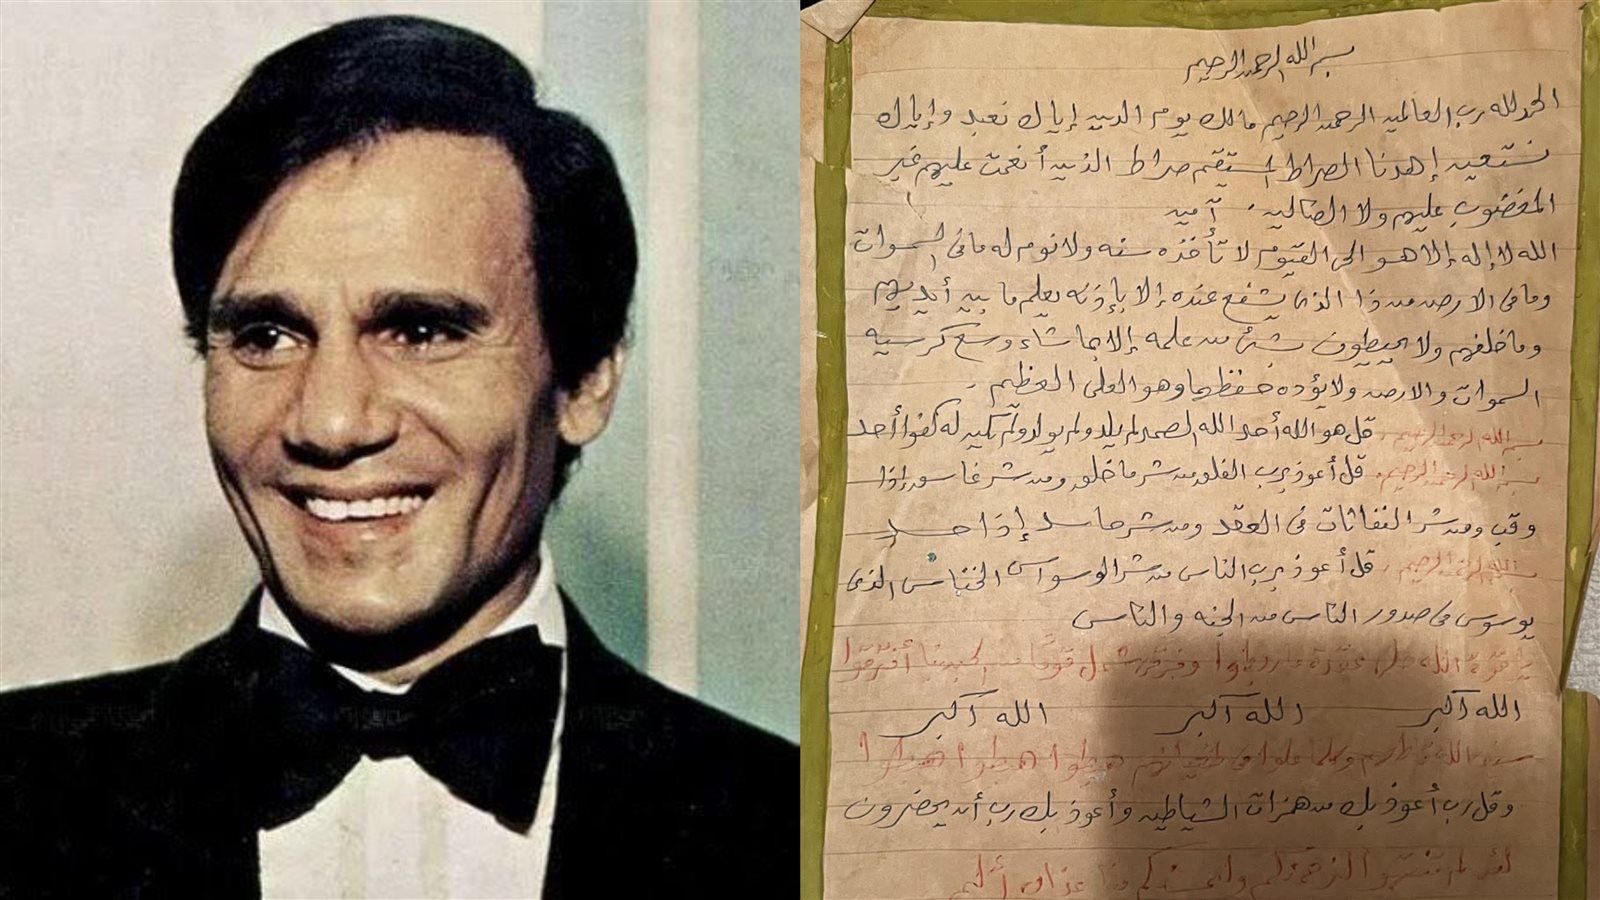 بسم الله الرحمن الرحيم
الحمد لله رب العالمين الرحمن الرحيم مالك يوم الدين إياك نعبد وإياك
نستعين إهدنا الصراط المستقيم صراط الذين أنعمت عليهم غير
المغضوب عليهم ولا الضالين . آمين
الله لا إله إلا هو الحى القيوم لا تأخذه سنه ولا نوم له ما فى السموات
وما فى الارض من ذا الذى يشفع عنده إلا بإذنه يعلم ما بين أيديهم
وما خلفهم ولا يحيطون بشئ من علمه إلا بما شاء وسع كرسيه
السموات والارض ولا يؤده حفظهما وهو العلى العظيم .
بسم الله الرحمن الرحيم . قل هو الله أحد الله الصمد لم يلد ولم يولد ولم يكن له كفوا أحد
بسم الله الرحمن الرحيم . قل أعوذ برب الفلق من شر ما خلق ومن شر غاسق إذا
وقب ومن شر النفاثات فى العقد ومن شر حاسد إذا حسد
بسم الله الرحمن الرحيم . قل أعوذ برب الناس من شر الوسواس الخناس الذى
يوسوس فى صدور الناس من الجنه والناس
الله
الله أكبر الله أكبر الله أكبر
الله هبطوا هبطوا
وقل رب أعوذ بك من همزات الشياطين وأعوذ بك رب أن يحضرون
عذاب أليم